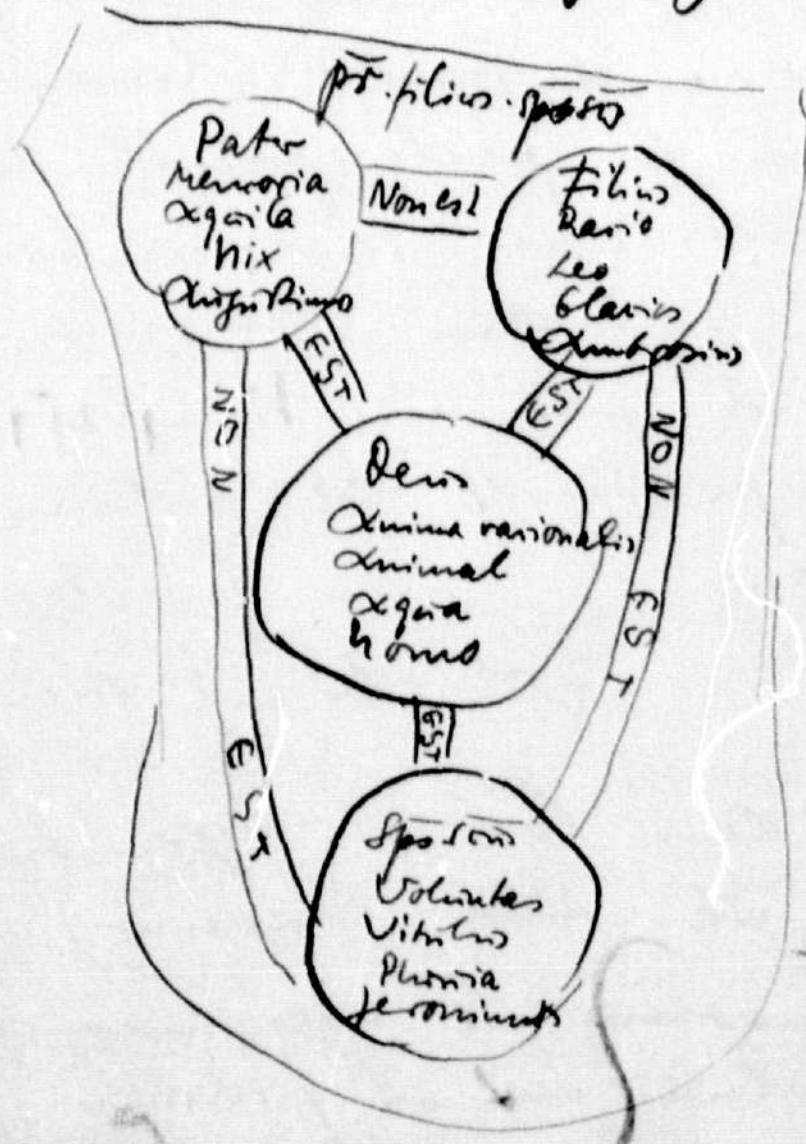 pr̄. filius. sp̄s sc̄s
Pater
Memoria
Aquila
Nix
Augustinus
Non est
Filius
Racio
Leo
Glacies
Ambrosius
EST
EST
NON EST
NON EST
Deus
Anima racionalis
Animal
Aqua
homo
EST
Sp̄s sc̄s
Voluntas
Vitulus
Pluvia
Jeronimus